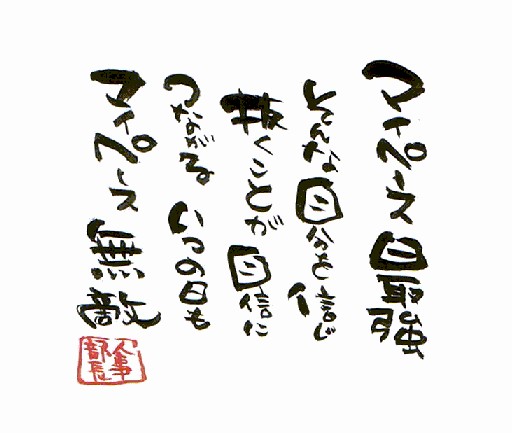 マイペース最強
そんな自分を信じ
抜くことが自信に
つながる いつの日も
マイペース無敵
人事部長